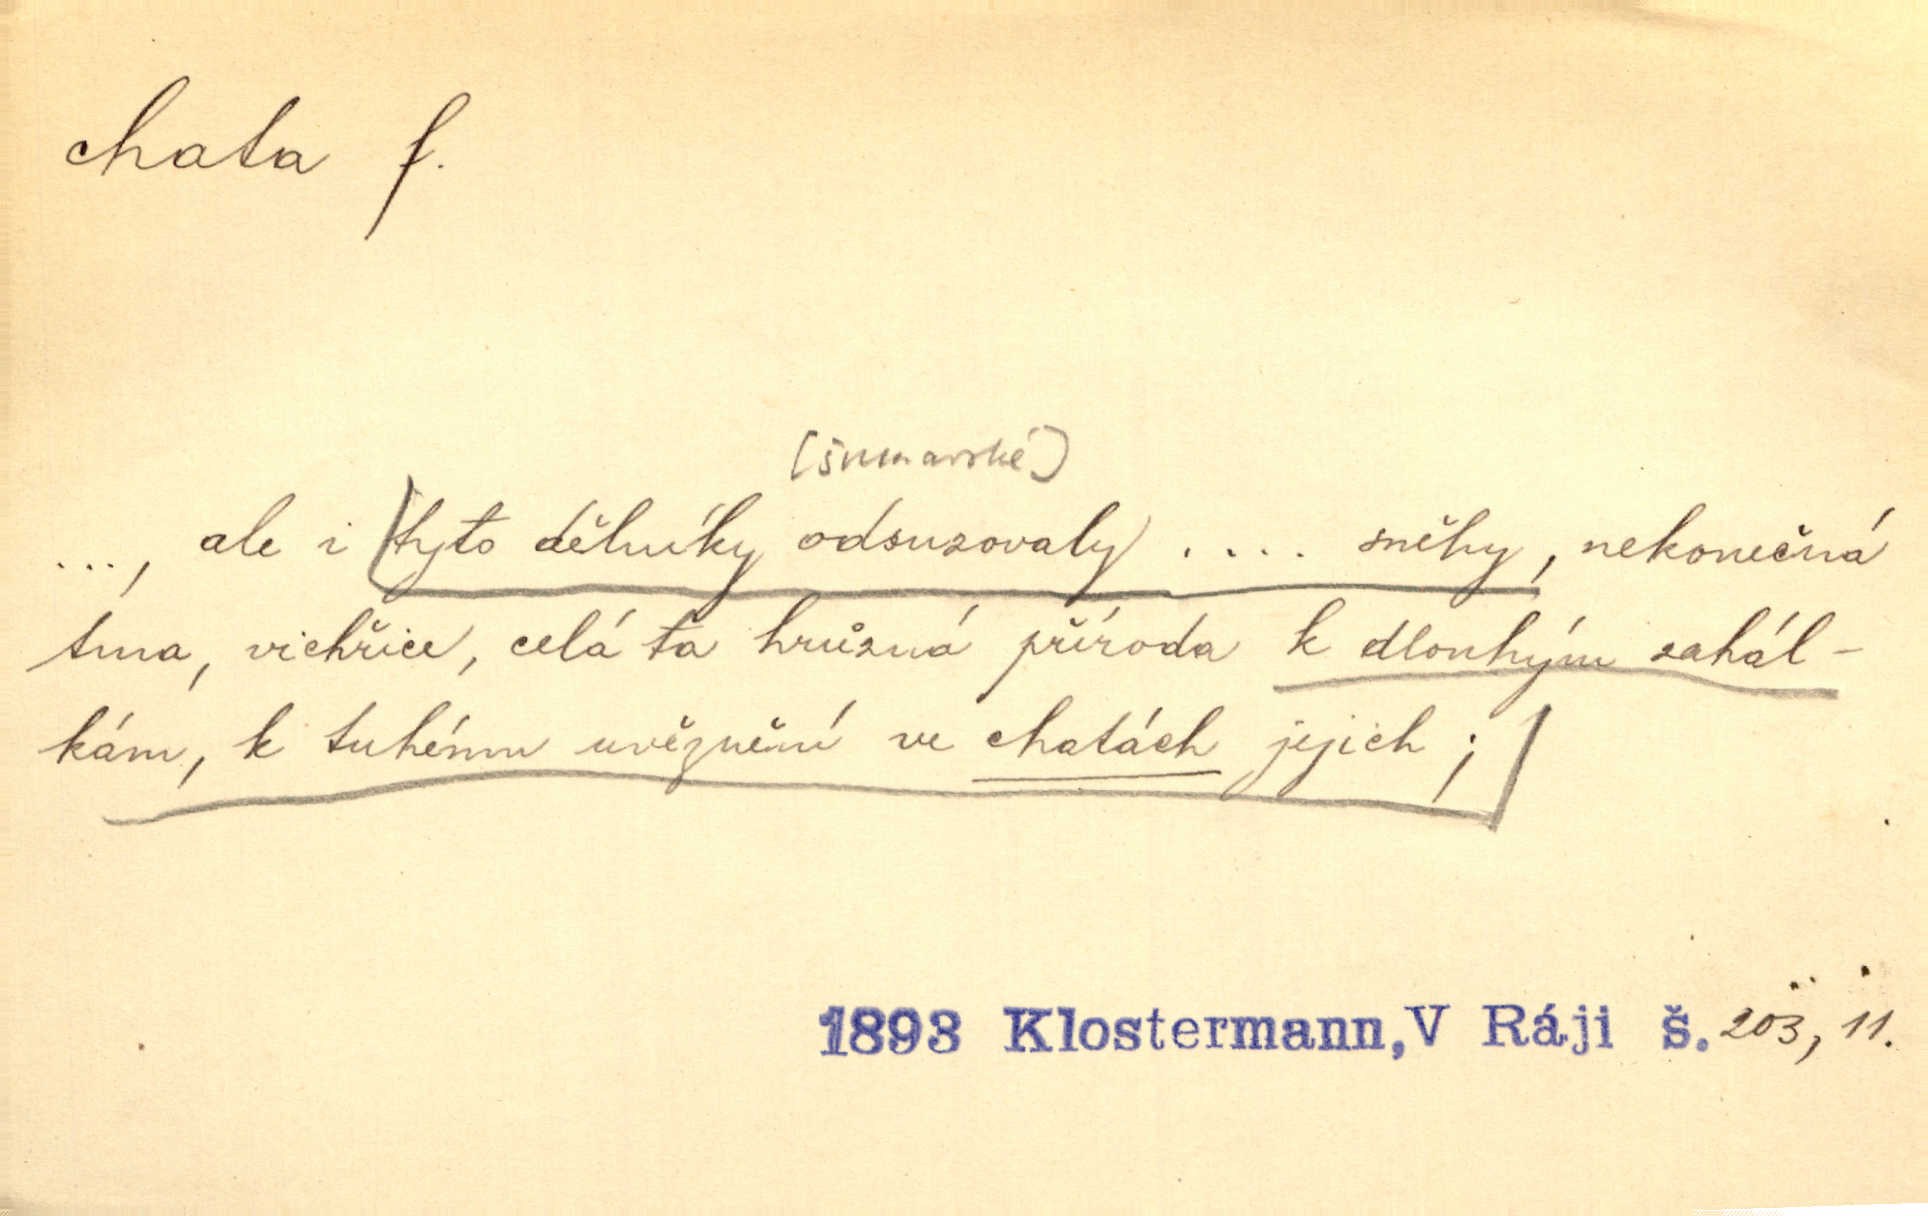 chata f.
[šumavské]
..., ale i tyto dělníky odsuzovaly .... sněhy, nekonečná
tma, vichřice, celá ta hrůzná příroda k dlouhým zahál-
kám, k tuhému uvěznění ve chatách jejich;
1893 Klostermann,V Ráji š. 203, 11.